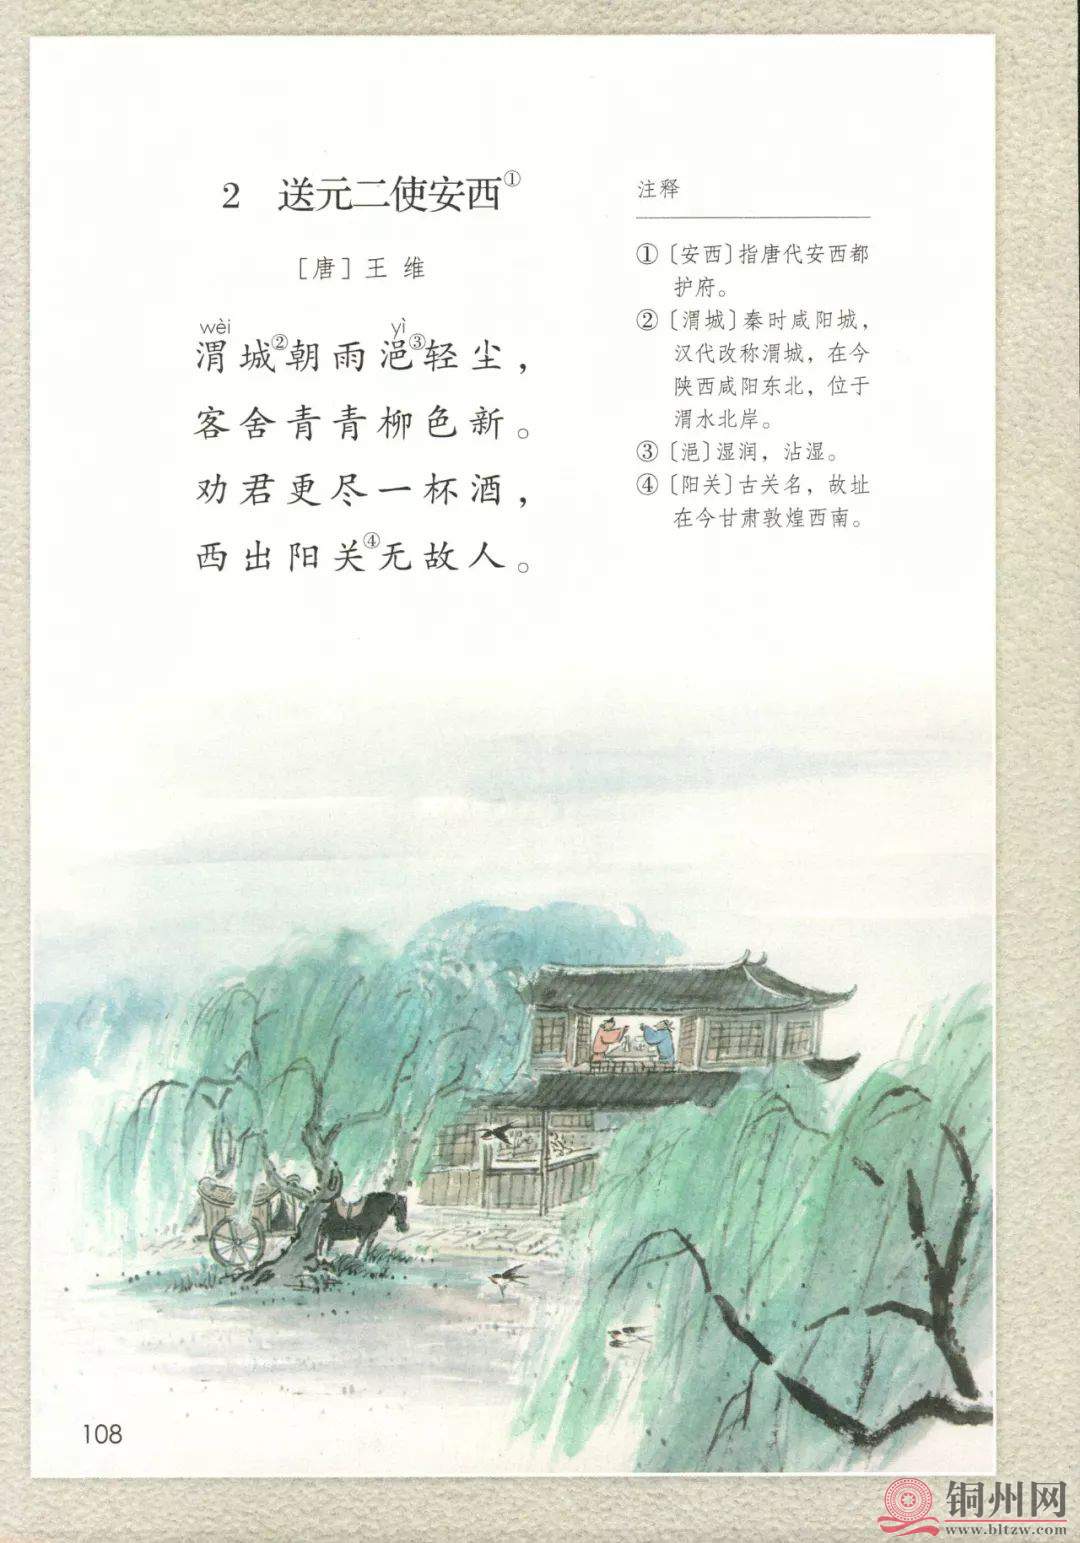 2 送元二使安西①
［唐］王 维
wèi yì
渭城②朝雨浥③轻尘，
客舍青青柳色新。
劝君更尽一杯酒，
西出阳关④无故人。
注释
①〔安西〕指唐代安西都
护府。
②〔渭城〕秦时咸阳城，
汉代改称渭城，在今
陕西咸阳东北，位于
渭水北岸。
③〔浥〕湿润，沾湿。
④〔阳关〕古关名，故址
在今甘肃敦煌西南。
108
铜州网
www.bltzw.com